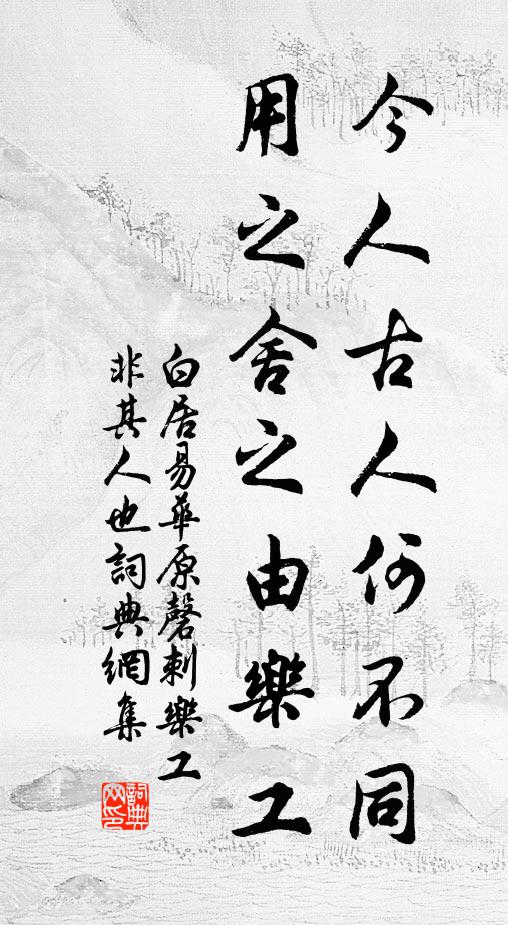 今人古人何不同
用之舍之由樂工
白居易華原磬刺樂工
非其人也詞典網集
詞典网印